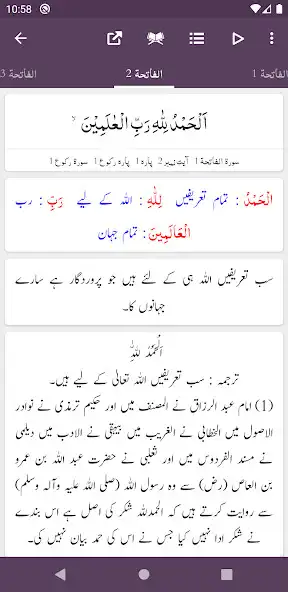 10:58
الفاتحة 1
الفاتحة 2
الفاتحة 3
اَلْحَمْدُ لِلّٰهِ رَبِّ الْعٰلَمِيْنَ ۙ
سورۃ الفاتحة 1 آیت نمبر 2 پارہ 1 پارہ رکوع 1 سورۃ رکوع 1
الْحَمْدُ : تمام تعریفیں لِلّٰهِ : اللہ کے لیے رَبِّ : رب
الْعَالَمِينَ : تمام جہان
سب تعریفیں اللہ ہی کے لئے ہیں جو پروردگار ہے سارے
جہانوں کا۔
اَلْحَمْدُ لِلّٰهِ
ترجمہ : سب تعریفیں اللہ تعالیٰ کے لیے ہیں۔
(1) امام عبد الرزاق نے المصنف میں اور حکیم ترمذی نے نوادر
الاصول میں الخطابی نے الغریب میں بیہقی نے الادب میں دیلمی
نے مسند الفردوس میں اور ثعلبی نے حضرت عبد اللہ بن عمرو
بن العاص (رض) سے وہ رسول اللہ (صلی اللہ علیہ وآلہ وسلم)
سے روایت کرتے ہیں کہ الحمدللہ شکر کی اصل ہے اس بندے
نے شکر ادا نہیں کیا جس نے اس کی حمد بیان نہیں کی۔